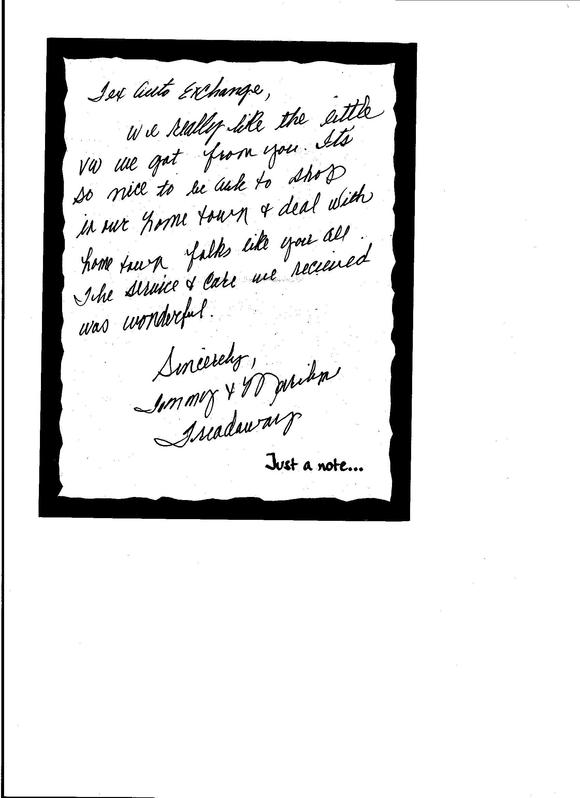 Tex Auto Exchange,
We really like the little
VW we got from you. Its
so nice to be able to shop
in our home town & deal with
home town folks like you all.
The service & care we recieved
was wonderful.
Sincerely,
Tommy & Marilyn
Treadaway
Just a note...